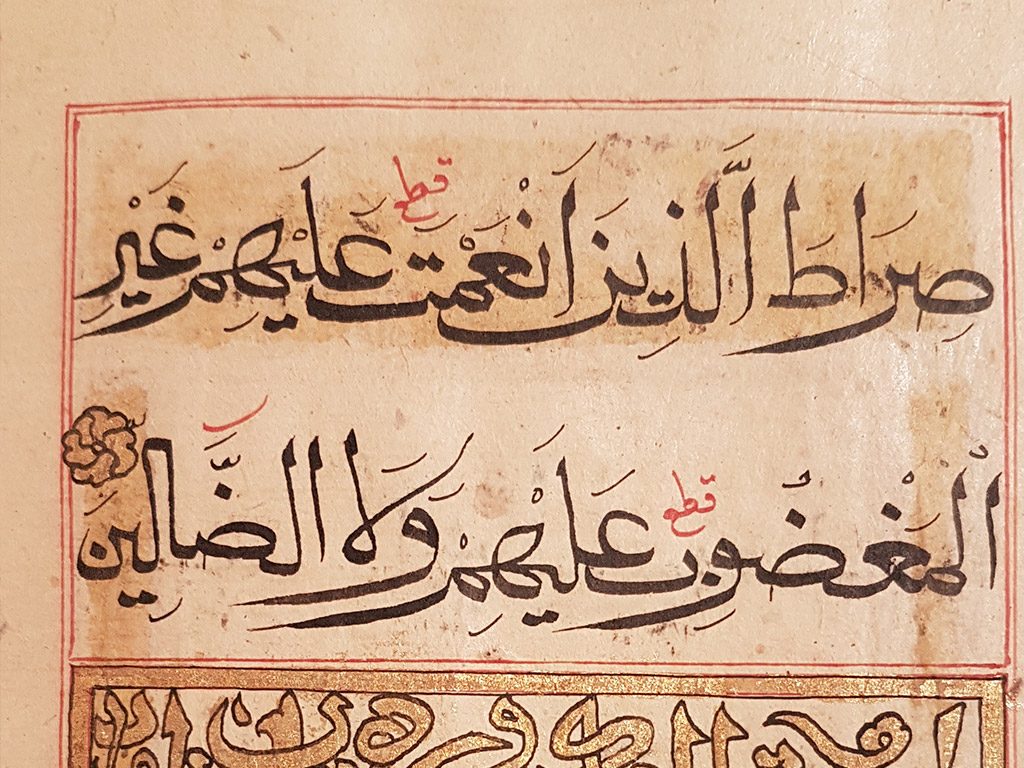 صِرَاطَ الَّذِينَ اَنْعَمْتَ عَلَيْهِمْ غَيْرِ
قطع
الْمَغْضُوبِ عَلَيْهِمْ وَلَا الضَّالِّينَ
قطع